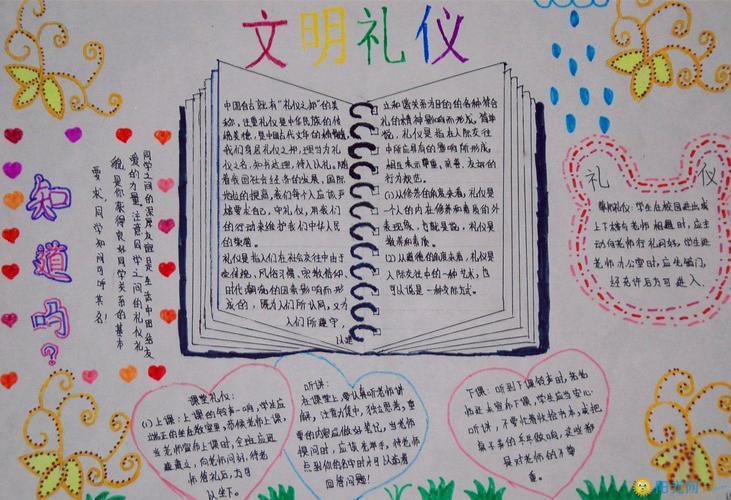 文明礼仪
中国自古就有“礼仪之邦”的美
称，注重礼仪是中华民族的传
统美德，是中国古代文年的精髓
我们身居礼仪之邦，理当为礼
仪之名，知书达理，待人以礼，随
着我国社会经济的发展，国际
地位的提高，我们每个人应该严
格要求自己，守礼仪，用我们
的行动来维护我们中华人民
的荣誉。
礼仪是指人们在社会交往中由于
受传统，风俗习惯，宗教信仰
时代潮流的因素影响而形
成的，既为人们所认同，又为
人们所遵守，
以建
立和谐关系为目的的各种符合
礼的精神影响而形成。简单
说，礼仪是指在人际交往
中所应具有的影响所形成。
相互表示尊重，亲善，友好的
行为规范。
(1)从修养的角度来看，礼仪是
一个人的内在修养和素质的外
表现像。也就是说，礼仪是
教养和素质。
(2)从道德的角度来看，礼仪是
人际交往中的一种艺术，也
可以说是一种交际方式。
知道吗？
同学之间的深厚友谊是生活中团结友
爱的力量。注意同学之间的礼仪礼
貌是你获得良好同学关系的基本
要求，同学知间可听其名！
礼 仪
尊师礼仪：学生在校园进出或
上下楼与老师相遇时，应主
动向老师行礼问好，学生进
老师办公室时，应先敲门，
经允许后方可进入.
课堂礼仪：
(1)上课：上课的铃声一响，学生应
端正的坐在教室里，恭候老师上课，
当老师宣布上课时，全班应迅
速肃立，向老师问好，待老
师答礼后，方可
以坐下。
听讲：
在课堂上，要认真听老师讲
解，注意力集中，独立思考，重
要的内容应做好笔记，当老师
提问时，应该先举手，待老师
点到你的名字时才可以站着
回答问题！
下课：听到下课铃声时，若老
师还未宣布下课，学生应当安心
听讲，不要忙着收拾书本，或把
桌子弄的乒乒作响，这些都
是对老师的不尊
重。